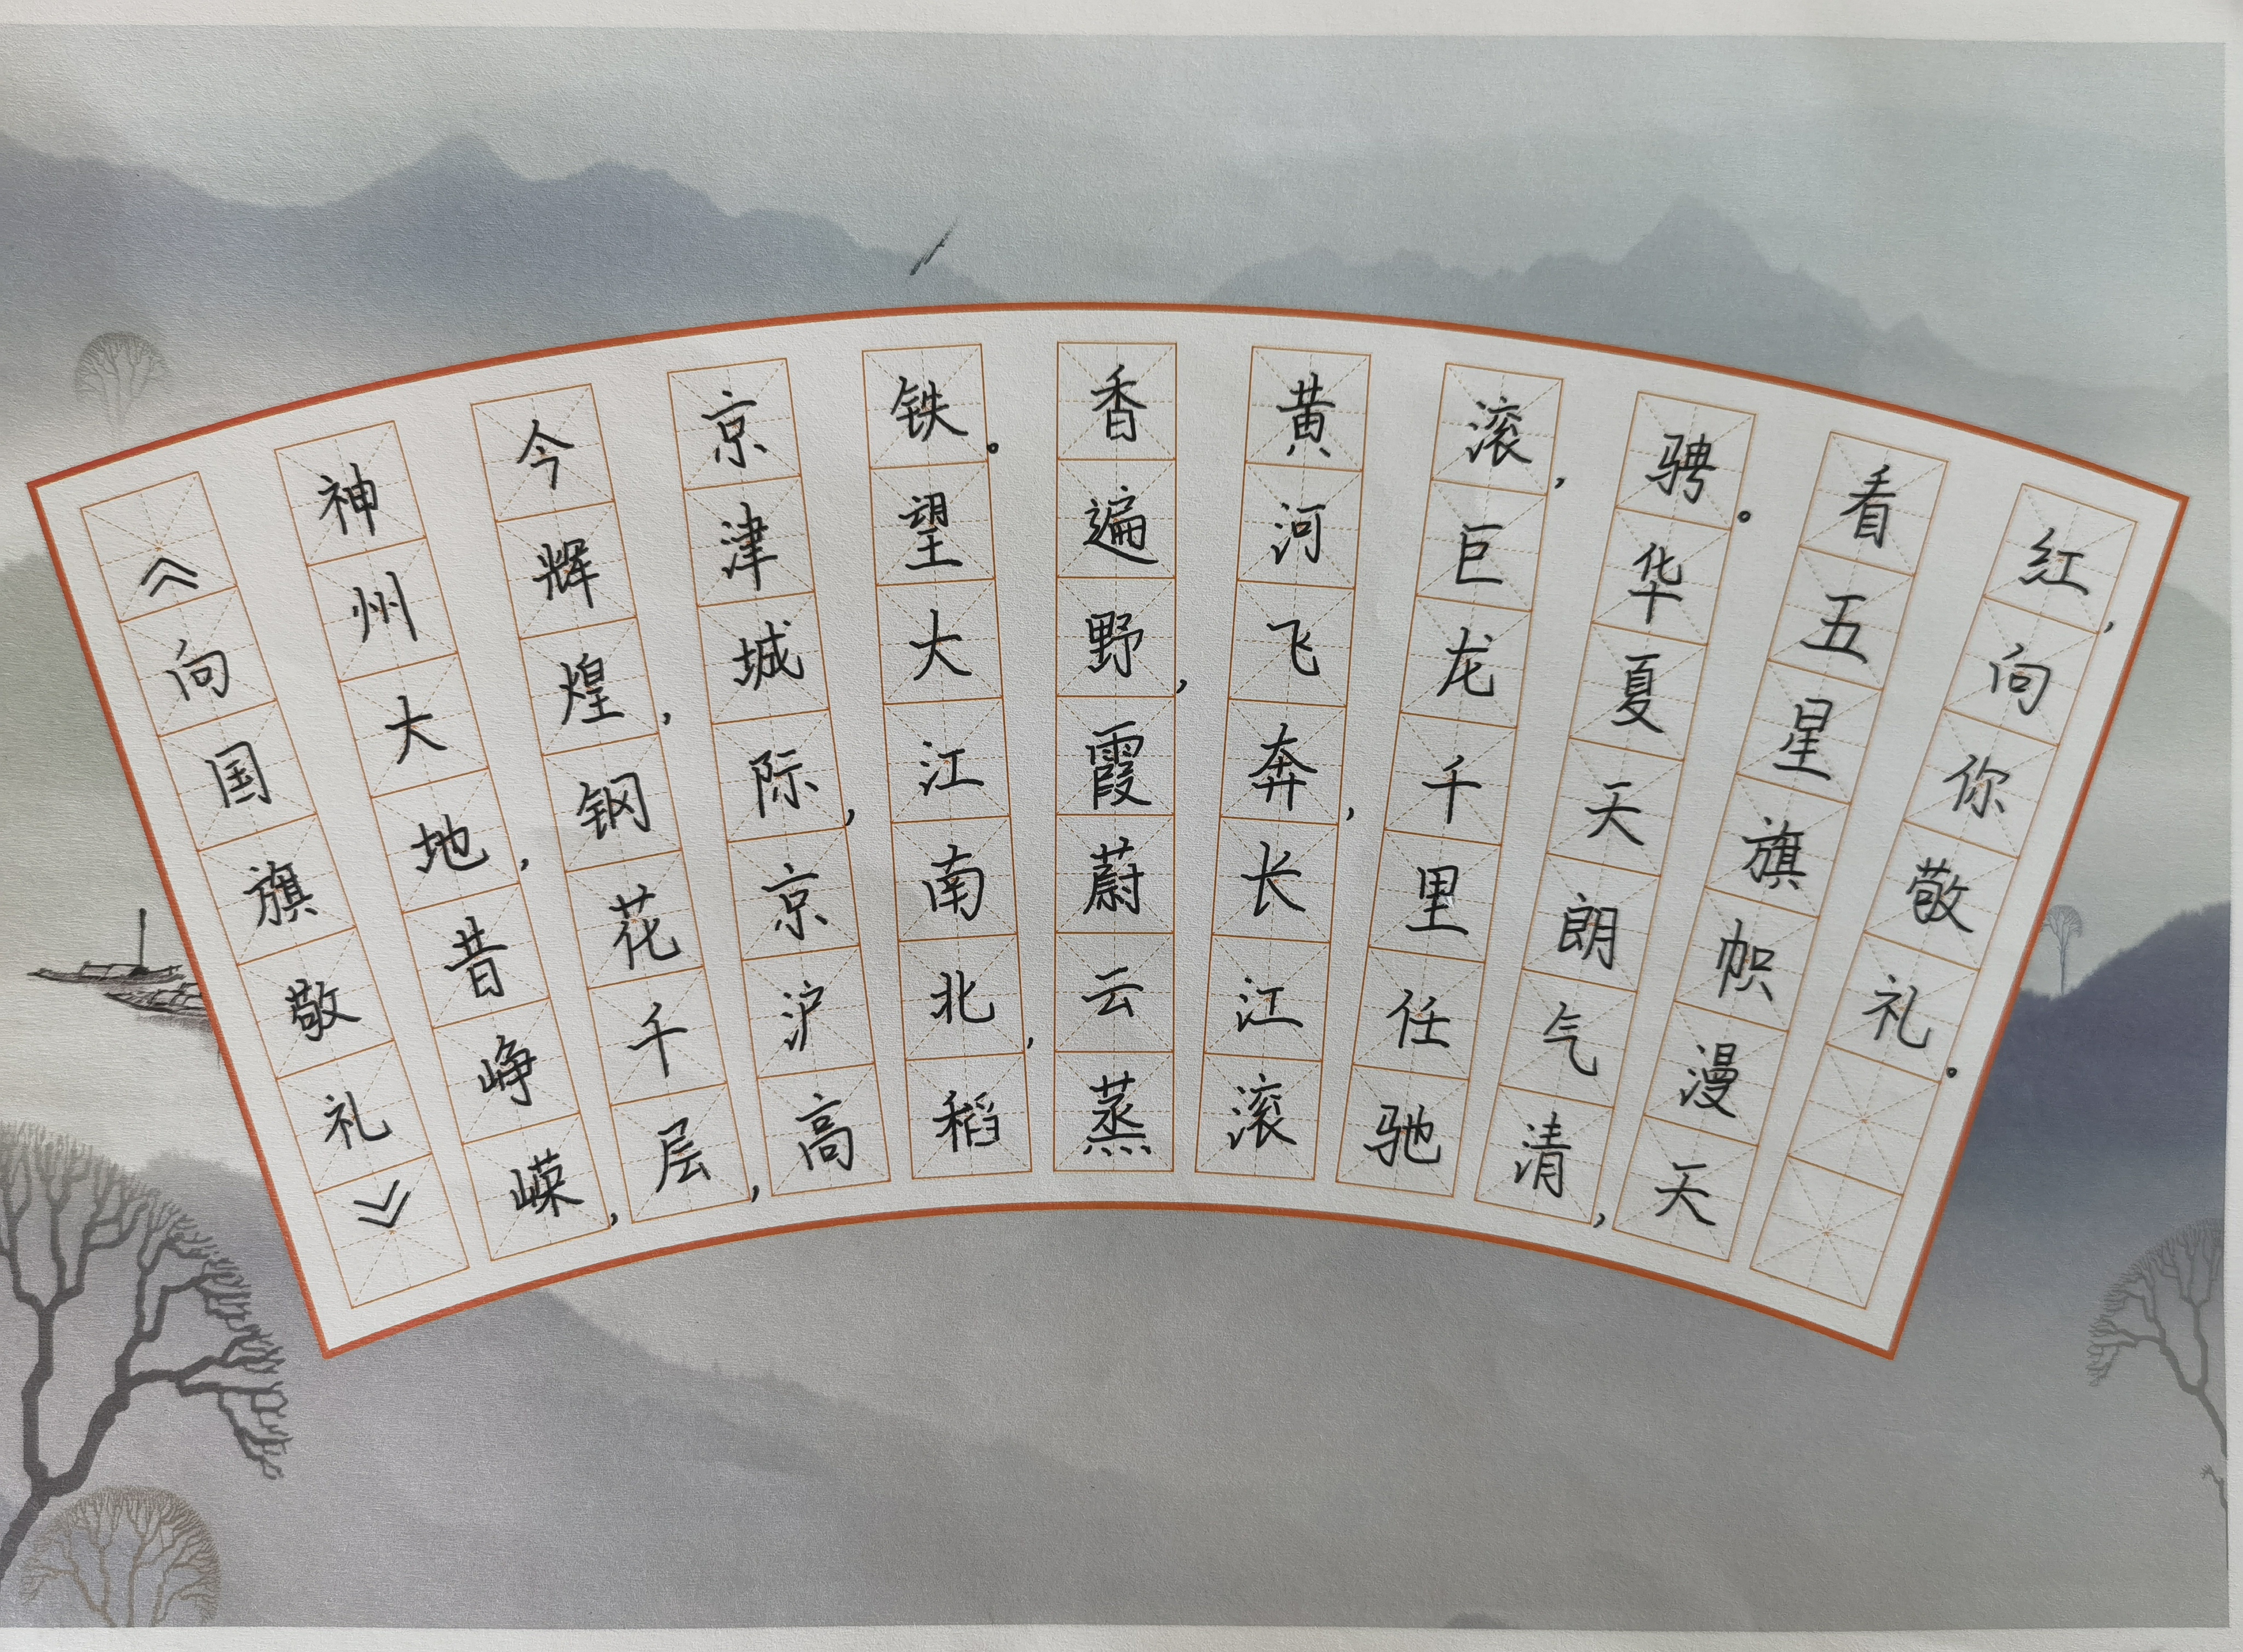 《向国旗敬礼》
神州大地,昔峥嵘,
今辉煌,钢花千层,
京津城际,京沪高
铁。望大江南北,稻
香遍野,霞蔚云蒸
黄河飞奔,长江滚
滚,巨龙千里任驰
骋。华夏天朗气清,
看五星旗帜漫天
红,向你敬礼。